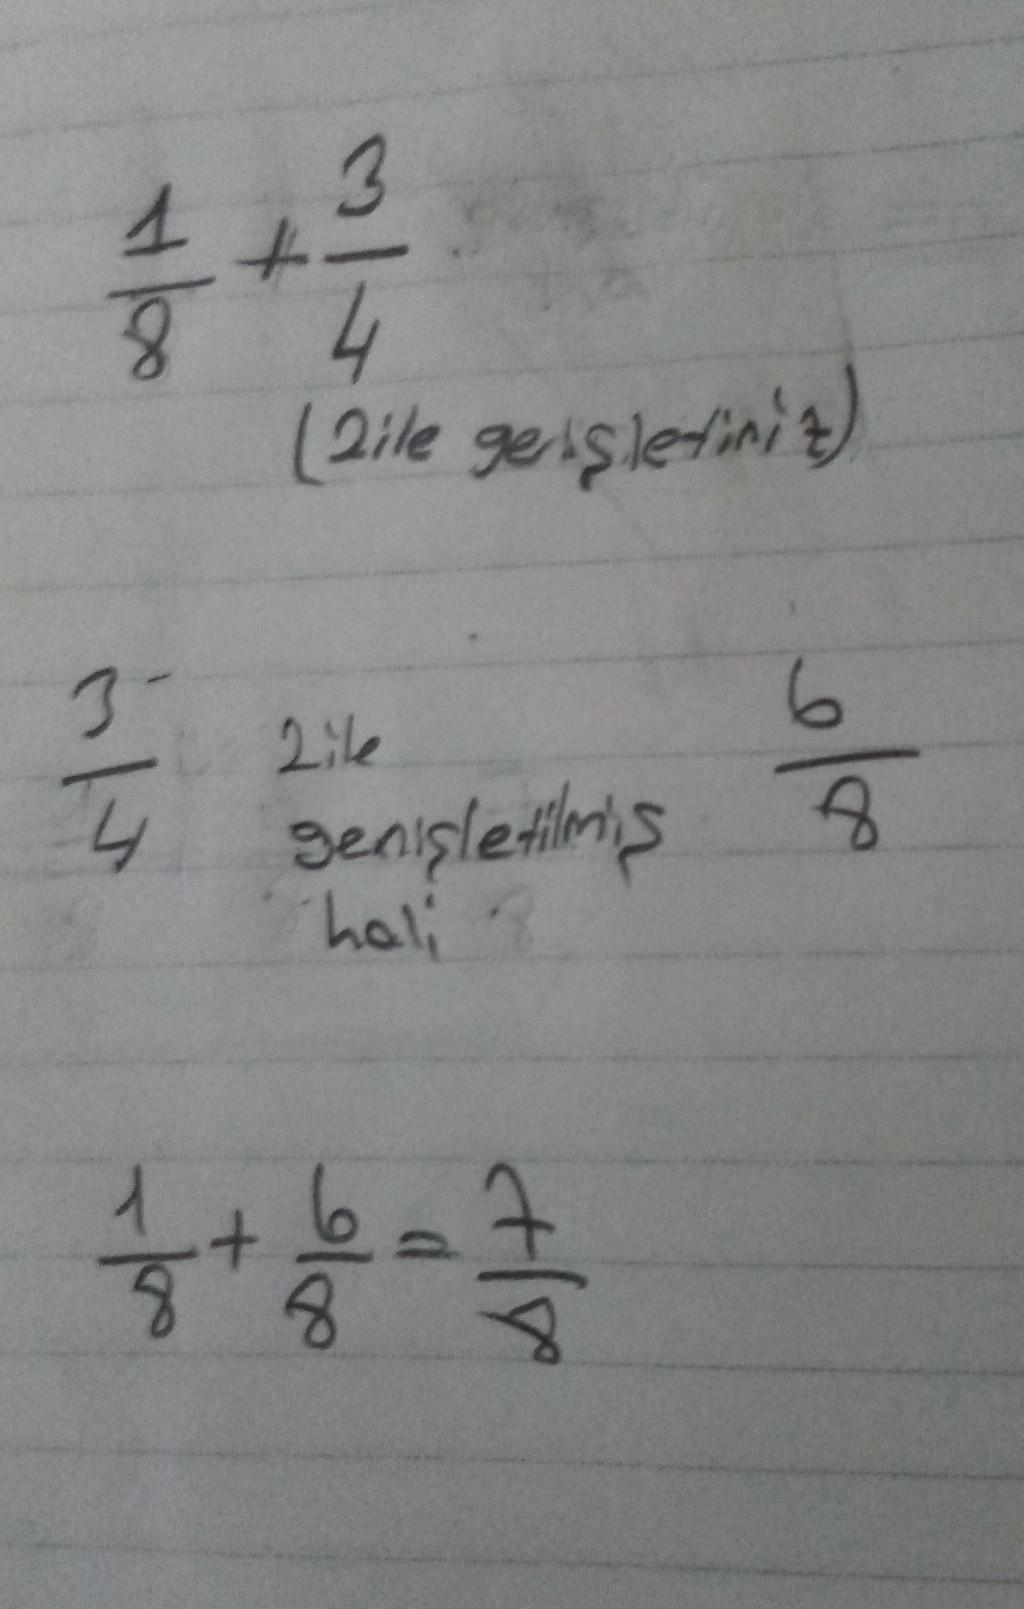 1/8 + 3/4
(2ile genişletiniz)
3/4 2ile genişletilmiş hali 6/8
1/8 + 6/8 = 7/8